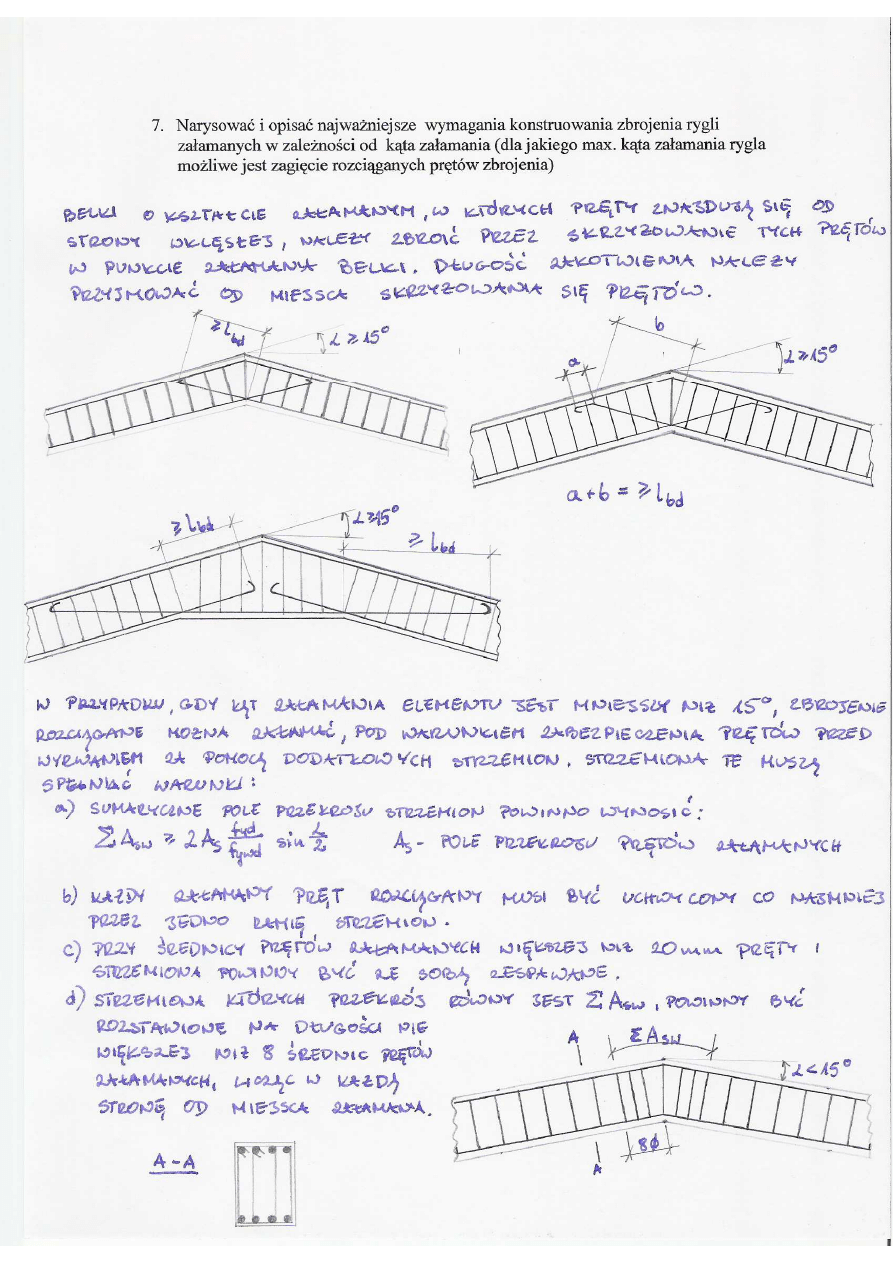 7. Narysować i opisać najważniejsze wymagania konstruowania zbrojenia rygli
załamanych w zależności od kąta załamania (dla jakiego max. kąta załamania rygla
możliwe jest zagięcie rozciąganych prętów zbrojenia)
BELKI O KSZTAŁCIE ZAŁAMANYM, W KTÓRYCH PRĘTY ZNAJDUJĄ SIĘ OD
STRONY WKLĘSŁEJ, NALEŻY ZBROIĆ PRZEZ SKRZYŻOWANIE TYCH PRĘTÓW
W PUNKCIE ZAŁAMANIA BELKI. DŁUGOŚĆ ZAKOTWIENIA NALEŻY
PRZYJMOWAĆ OD MIEJSCA SKRZYŻOWANIA SIĘ PRĘTÓW.
≥ lbd
α ≥ 15°
a
b
α ≥ 15°
a + b = ≥ lbd
≥ lbd
α ≥ 15°
≥ lbd
W PRZYPADKU, GDY KĄT ZAŁAMANIA ELEMENTU JEST MNIEJSZY NIŻ 15°, ZBROJENIE
ROZCIĄGANE MOŻNA ZAŁAMAĆ, POD WARUNKIEM ZABEZPIECZENIA PRĘTÓW PRZED
WYRWANIEM ZA POMOCĄ DODATKOWYCH STRZEMION. STRZEMIONA TE MUSZĄ
SPEŁNIAĆ WARUNKI:
a) SUMARYCZNE POLE PRZEKROJU STRZEMION POWINNO WYNOSIĆ:
Σ Asw ≥ 2 As fyd/fywd sin α/2 As - POLE PRZEKROJU PRĘTÓW ZAŁAMANYCH
b) KAŻDY ZAŁAMANY PRĘT ROZCIĄGANY MUSI BYĆ UCHWYCONY CO NAJMNIEJ
PRZEZ JEDNO RAMIĘ STRZEMION.
c) PRZY ŚREDNICY PRĘTÓW ZAŁAMANYCH WIĘKSZEJ NIŻ 20mm PRĘTY I
STRZEMIONA POWINNY BYĆ ZE SOBĄ ZESPAWANE.
d) STRZEMIONA KTÓRYCH PRZEKRÓJ RÓWNY JEST Σ Asw, POWINNY BYĆ
ROZSTAWIONE NA DŁUGOŚCI NIE
WIĘKSZEJ NIŻ 8 ŚREDNIC PRĘTÓW
ZAŁAMANYCH, LICZĄC W KAŻDĄ
STRONĘ OD MIEJSCA ZAŁAMANIA.
A
Σ Asw
α < 15°
A
8ϕ
A-A